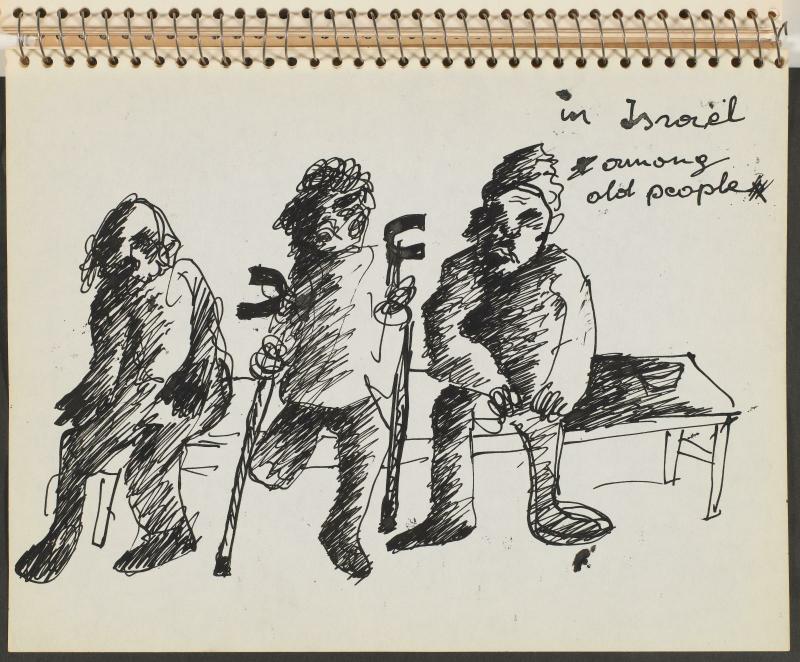 in Israël
among
old people